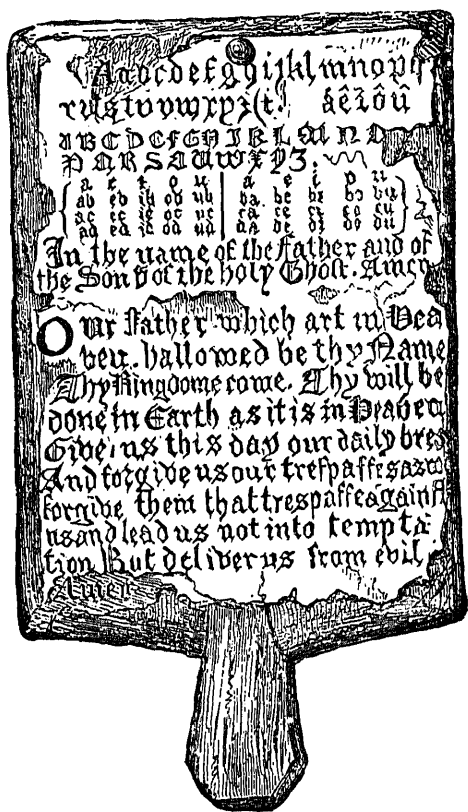 Aabcdefghijklmnop
áêîôû
ABCDEFGHIJKLMNO
PQRSTUVWXYZ.
a e i o u a e i o u
ab eb ib ob ub ba be bi bo bu
ac ec ic oc uc ca ce ci co cu
ad ed id od ud da de di do du
In the name of the Father and of
the Son & of the holy Ghost. Amen
Our Father which art in Hea
ven. hallowed be thy Name
Thy Kingdome come. Thy will be
done in Earth as it is in Heaven
Give us this day our daily brea
And forgive us our treſpaſſes as we
forgive them that treſpaſſe againſt
us and lead us not into tempta
tion But deliver us from evil
Amen